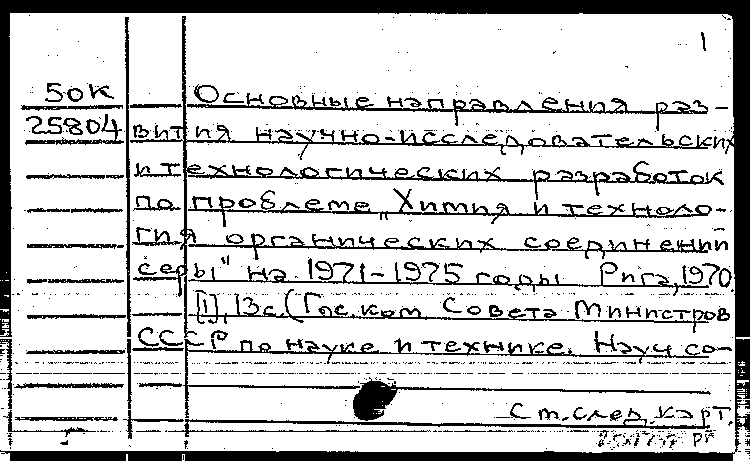 1
50К Основные направления раз-
25804 вития научно-исследовательских
и технологических разработок
по проблеме „Химия и техноло-
гия органических соединений
серы" на 1971-1975 годы Рига, 1970
[1], 13с. (Гос. ком. Совета Министров
СССР по науке и технике. Науч со-
См. след. карт.